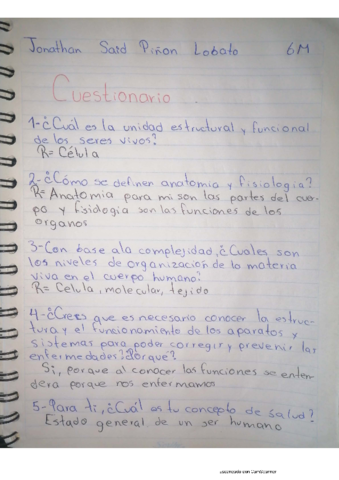 Jonathan Said Piñon Lobato 6M
Cuestionario.
1-¿Cuál es la unidad estructural y funcional
de los seres vivos?
R= Célula
2-¿Cómo se definen anatomia y fisiologia?
R= Anatomia para mi son las partes del cuer
po y fisiologia son las funciones de los
organos
3-Con base ala complejidad, ¿Cuales son
los niveles de organización de la materia
viva en el cuerpo humano?
R= Celula, molecular, tejido
4-¿Crees que es necesario conocer la estruc-
tura y el funcionamiento de los aparatos y
sistemas para poder corregir y prevenir las
enfermedades? ¿Porque?
Si, porque al conocer las funciones se enten-
dera porque nos enfermamos
5-Para ti, ¿Cuál es tu concepto de salud?
Estado general de un ser humano
Escaneado con CamScanner